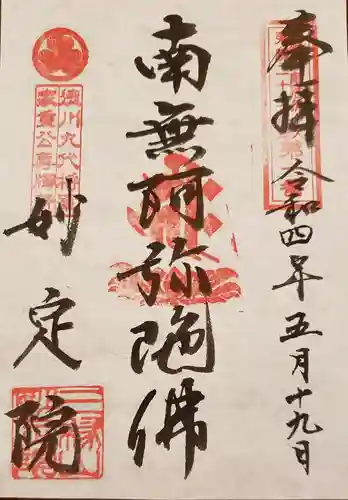 奉拝 令和四年五月十九日
南無阿弥陀佛
妙定院
徳川九代
家重公